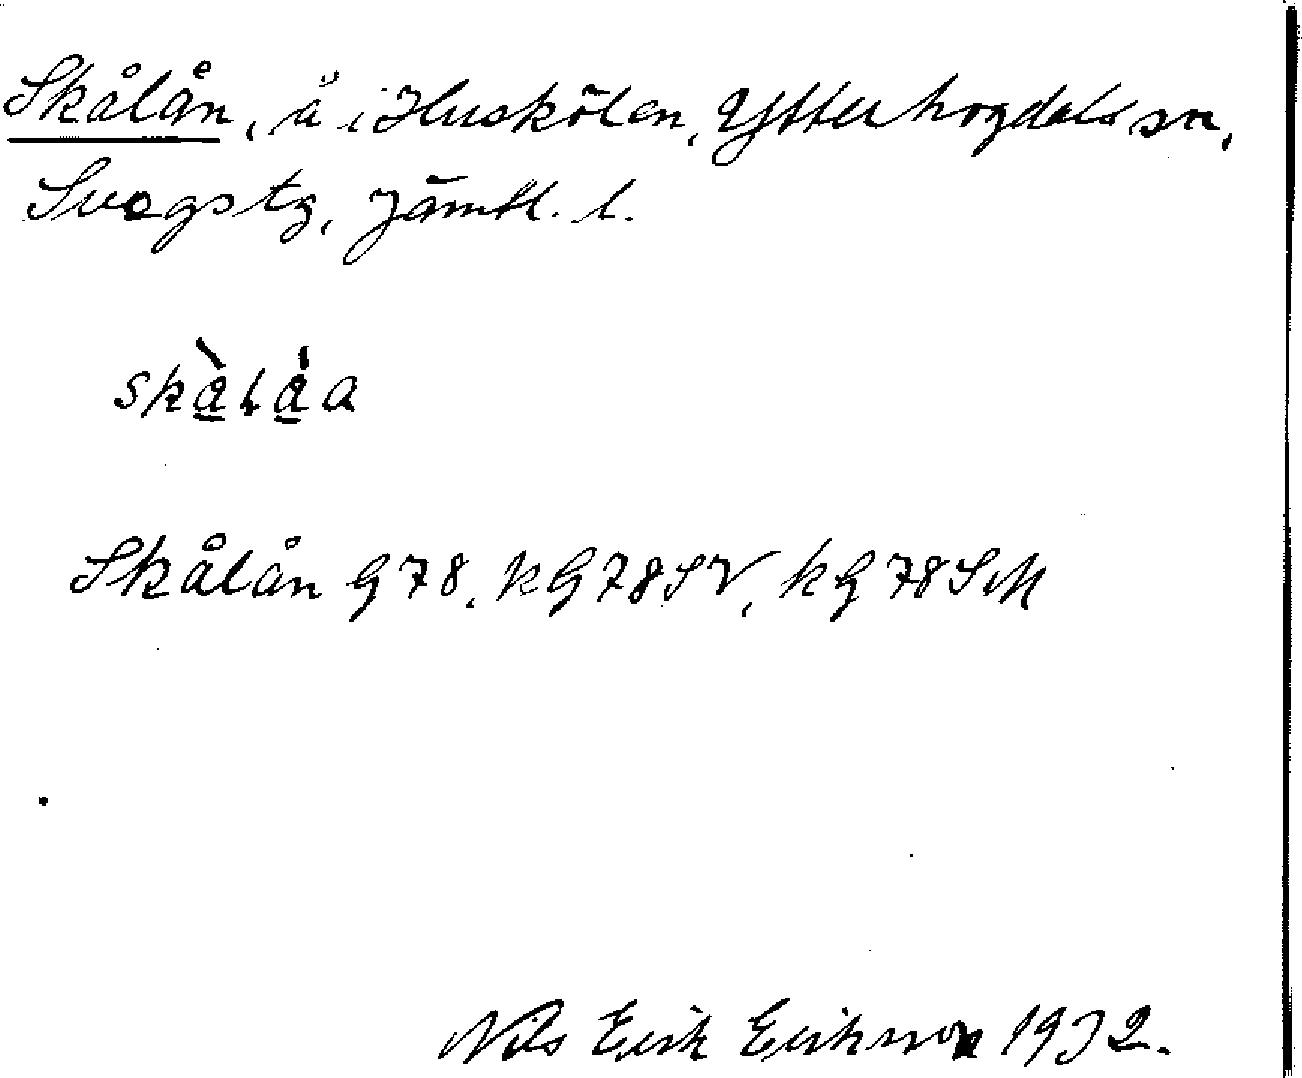 Skålån, å i Huskölen, Ytterhogdals sn,
Svegs tg, Jämtl. l.
skàlàa
Skålån G78, kG78SV, kG78SM
Nils Erik Eriksson 1932.